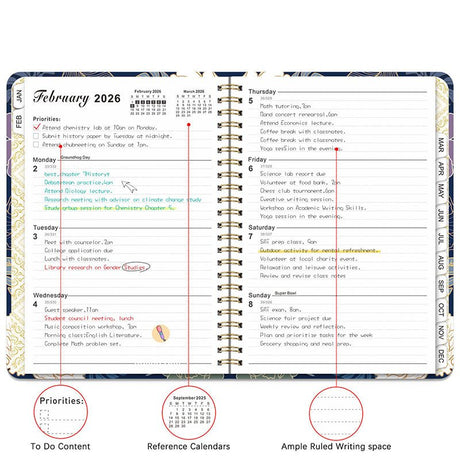 February 2026
February 2026
March 2026
Priorities:
Attend chemistry lab at 10am on Monday.
Submit history paper by Tuesday at midnight.
Attend clubmeeting on Sunday at 7pm.
Monday
Groundhog Day
2
best.chapter "History"
Debate team practice.4am
Attend Biology lecture.
Research meeting with advisor on climate change study
Study urban session for Chemistry Chapter 5.
Tuesday
3
Meet with counselor.2am
College application due
Lunch with classmates.
Library research on Gender Studigs
Wednesday
4
Guest speaker.11am
Student council meeting, lunch
Music composition workshop, 7am
Morning class:English Literature.
Complete Math problem set.
Thursday
5
Math tutoring.7am
Band concert rehearsal.1am
Attend Economics lecture.
Coffee break with classmates.
Coffee break with classmates.
Yoga session in the evening.
Friday
6
Science lab report due
Volunteer at food bank, 2am
Chess club tournament, 1am
Creative writing session.
Workshop on Academic Writing Skills.
Yoga session in the evening.
Saturday
7
SAT prep class, 9am
Outdoor activity for mental refreshment.
Volunteer at local charity event.
Relaxation and leisure activities
Review and revise class notes.
Sunday
Super Bowl
8
SAT exam, 8am.
Science fair project due
Weekly review and reflection.
Plan and prioritize tasks for the week
Grocery shopping and meal prep.
JAN
FEB
MAR
APR
MAY
JUN
JUL
AUG
SEP
OCT
NOV
DEC
Priorities:
September 2025
To Do Content
Reference Calendars
Ample Ruled Writing space